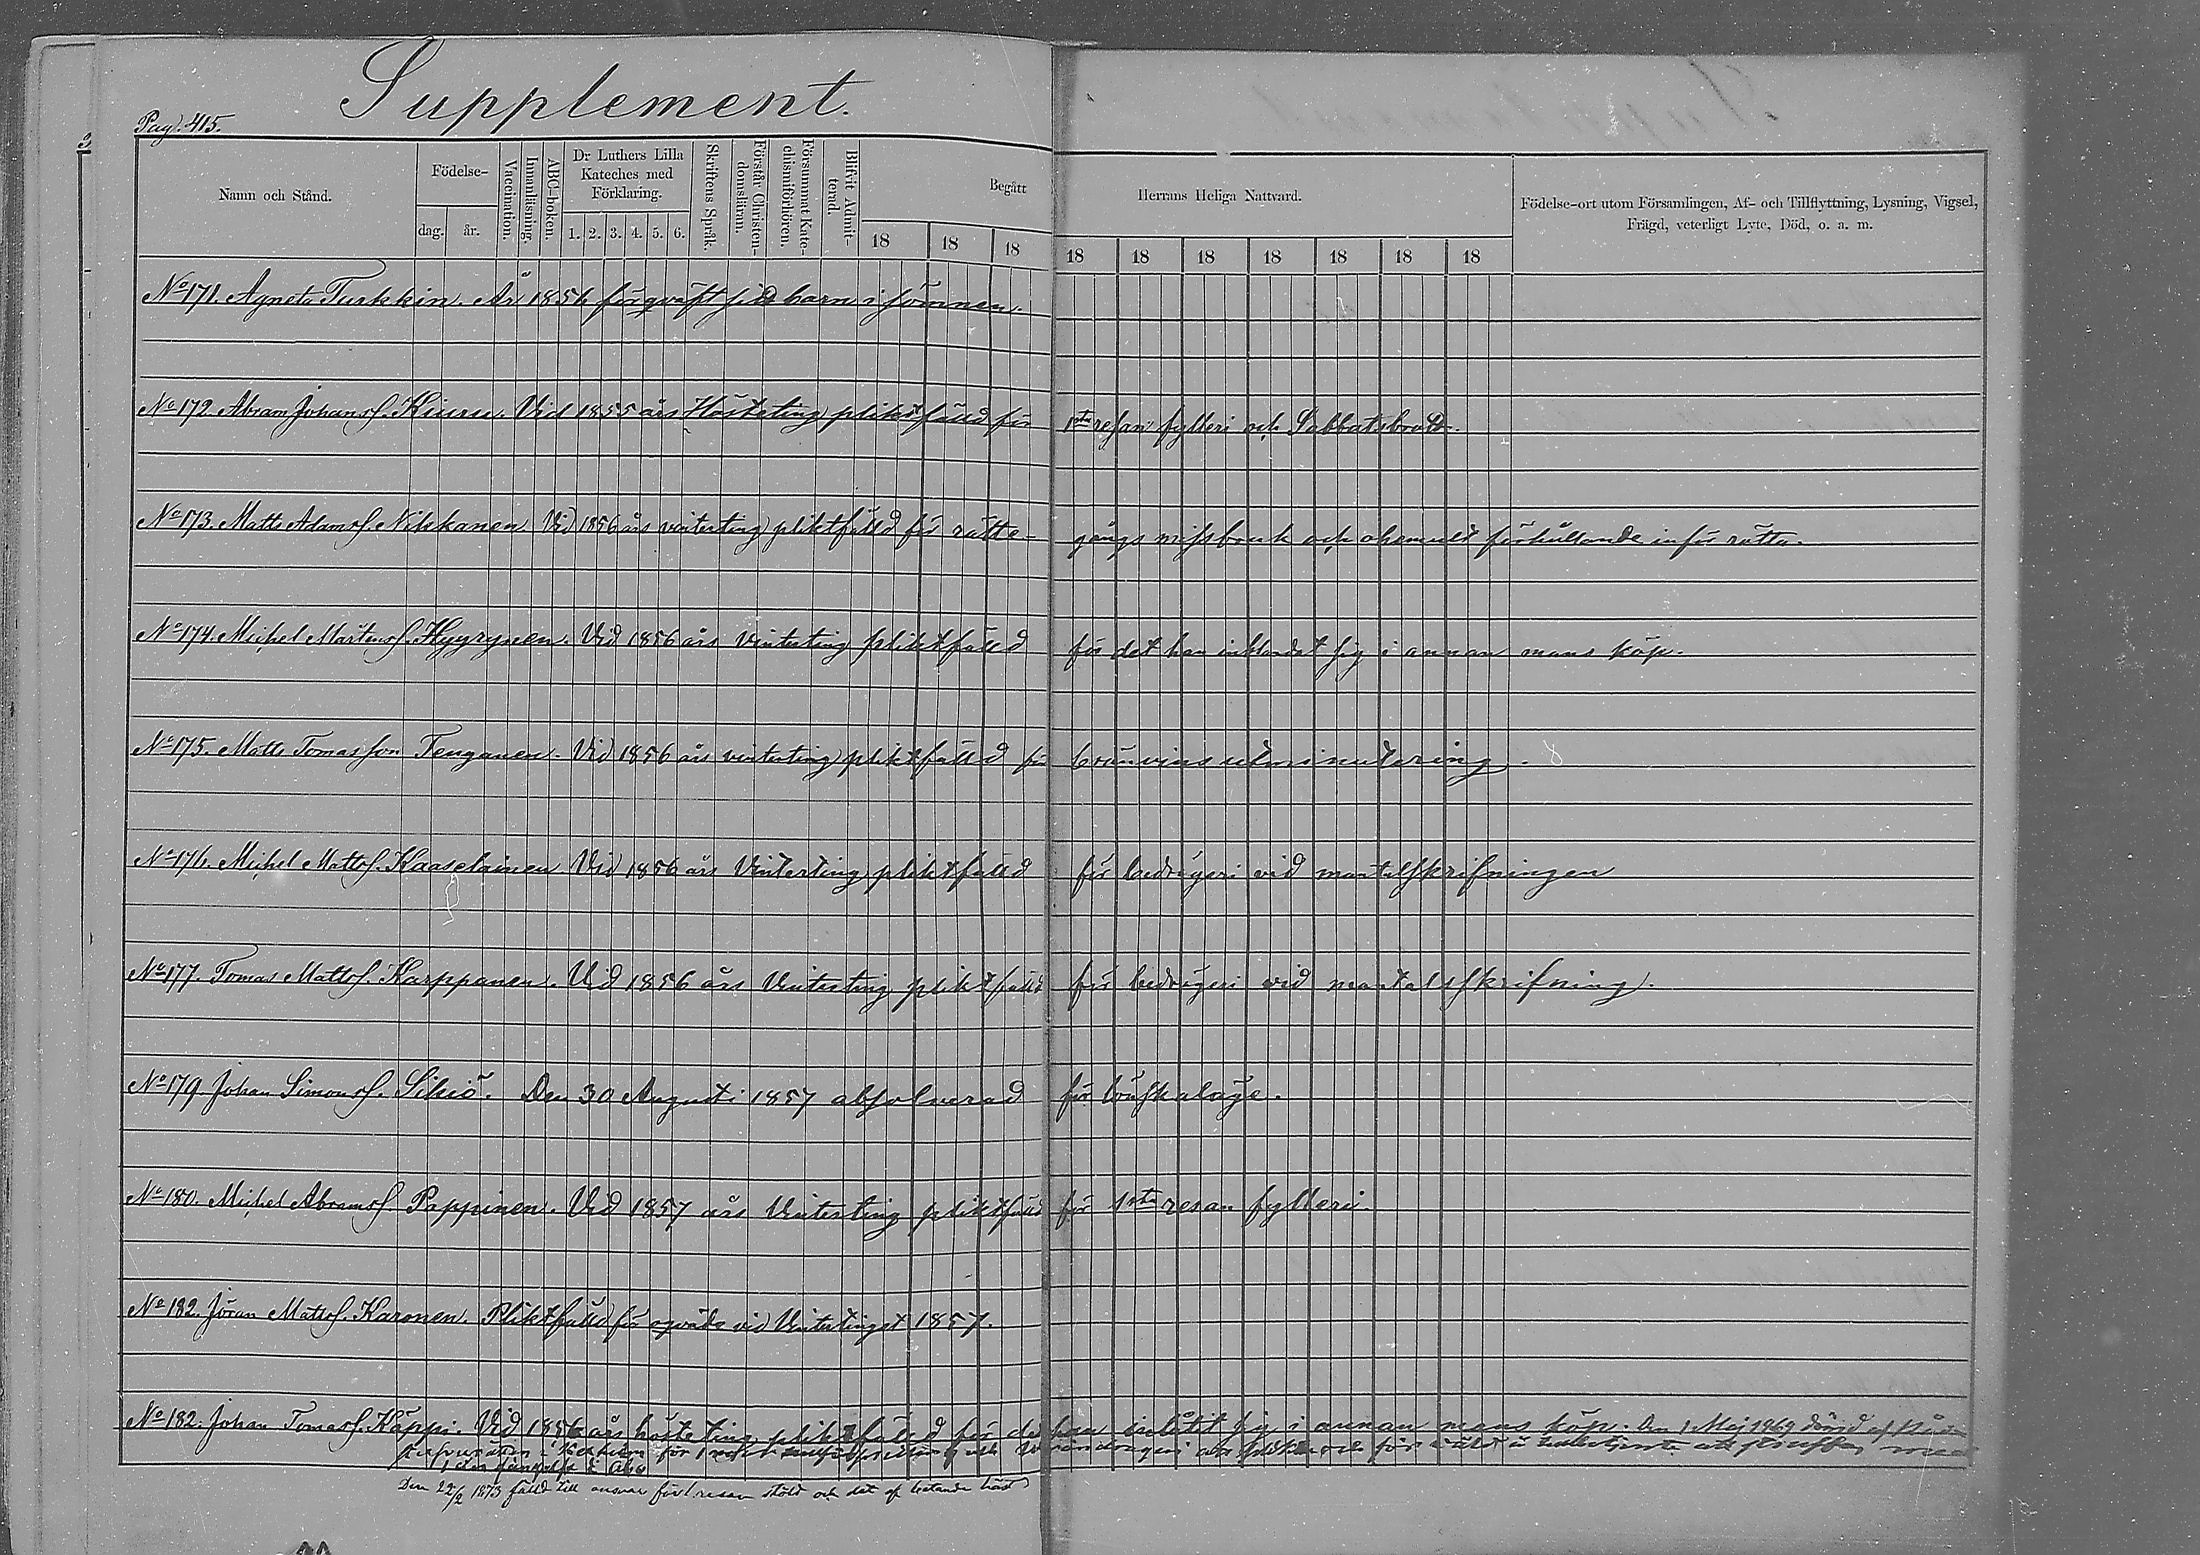 Supplement.
Pag. 415.
Namn och Stånd.
Födelse-
dag.
år.
Vaccination.
Innanläsning.
ABC-boken.
Dr Luthers Lilla
Kateches med
Förklaring.
1. 2. 3. 4. 5. 6.
Skriftens Språk.
Förstår Christen-
domsläran.
Försummat Kate-
chismiförhören.
Blifvit Admit-
terad.
Begått Herrans Heliga Nattvard.
18 18 18 18 18 18 18 18 18 18
Födelse-ort utom Församlingen, Af- och Tillflyttning, Lysning, Vigsel,
Frägd, veterligt Lyte, Död, o. a. m.
No 171. Agneta Turkkin. År 1856 förqväft sitt barn i sömnen.
No 172. Abram Johansf. Kiuru. Vid 1855 års Hösteting pliktfälld för 1sta resan fylleri och Sabbatsbrott.
No 173. Matts Adamsf. Nikkanen Vid 1856 års vinterting pliktfälld för rätte-gångs missbruk och ohemult förhållande inför rätta.
No 174. Michel Mårtensf. Hyyrynen. Vid 1856 års Vinterting pliktfälld för det han inblandat sig i annan mans köp.
No 175. Matts Tomasson Tenganen. Vid 1856 års vinterting pliktfälld för bränvins utminutering.
No 176. Michel Mattsf. Kaaselainen Vid 1856 års Vinterting pliktfälld för bedrägeri vid mantalskrifningen
No 177. Tomas Mattsf. Karppanen. Vid 1856 års Vinterting pliktfälld för bedrägeri vid mantalsskrifning.
No 179. Johan Simonsf. Sikiö. Den 30 Augusti 1857 absolverad för lönskaläge.
No 180. Michel Abramsf. Pappinen. Vid 1857 års Vinterting pliktfälld för 1sta resan fylleri.
No 182. Jöran Mattsf. Karonen. Pliktfälld för oqväde vid Vintertinget 1857.
No 182. Johan Tomasf. Käppi. Vid 1856 års hösteting pliktfälld för det han inlåtit sig i annan mans köp. Den 1 Maj 1869 dömd af
för och för att straffas med
fängelse i Åbo
Den 22/2 1873 fälld till ansvar för 1 resan stöld och det af betande häst